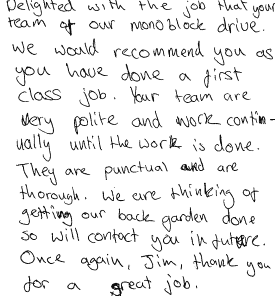 Delighted with the job that your
team of our monoblock drive.
We would recommend you as
you have done a first
class job. Your team are
very polite and work contin-
ually until the work is done.
They are punctual and are
thorough. We are thinking of
getting our back garden done
so will contact you in future.
Once again, Jim, thank you
for a great job.